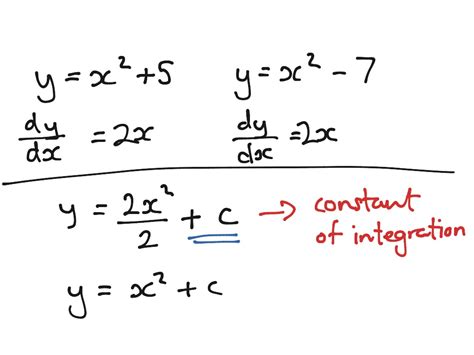 y = x² + 5    y = x² - 7
dy/dx = 2x    dy/dx = 2x
y = 2x²/2 + c → constant of integration
y = x² + c